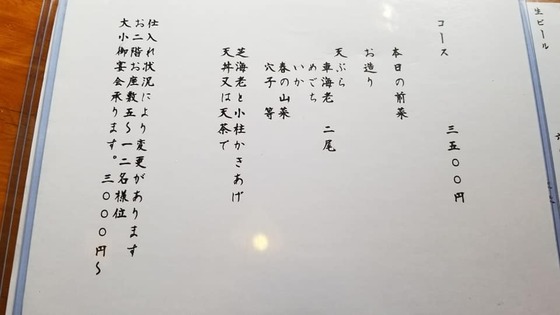 生ビール
コース 三五〇〇円
本日の前菜
お造り
天ぷら
車海老 二尾
めごち
いか
春の山菜
穴子 等
芝海老と小柱かきあげ
天丼又は天茶で
仕入れ状況により変更があります
お二階お座敷五〜一二名様位
大小御宴会承ります。三〇〇〇円〜